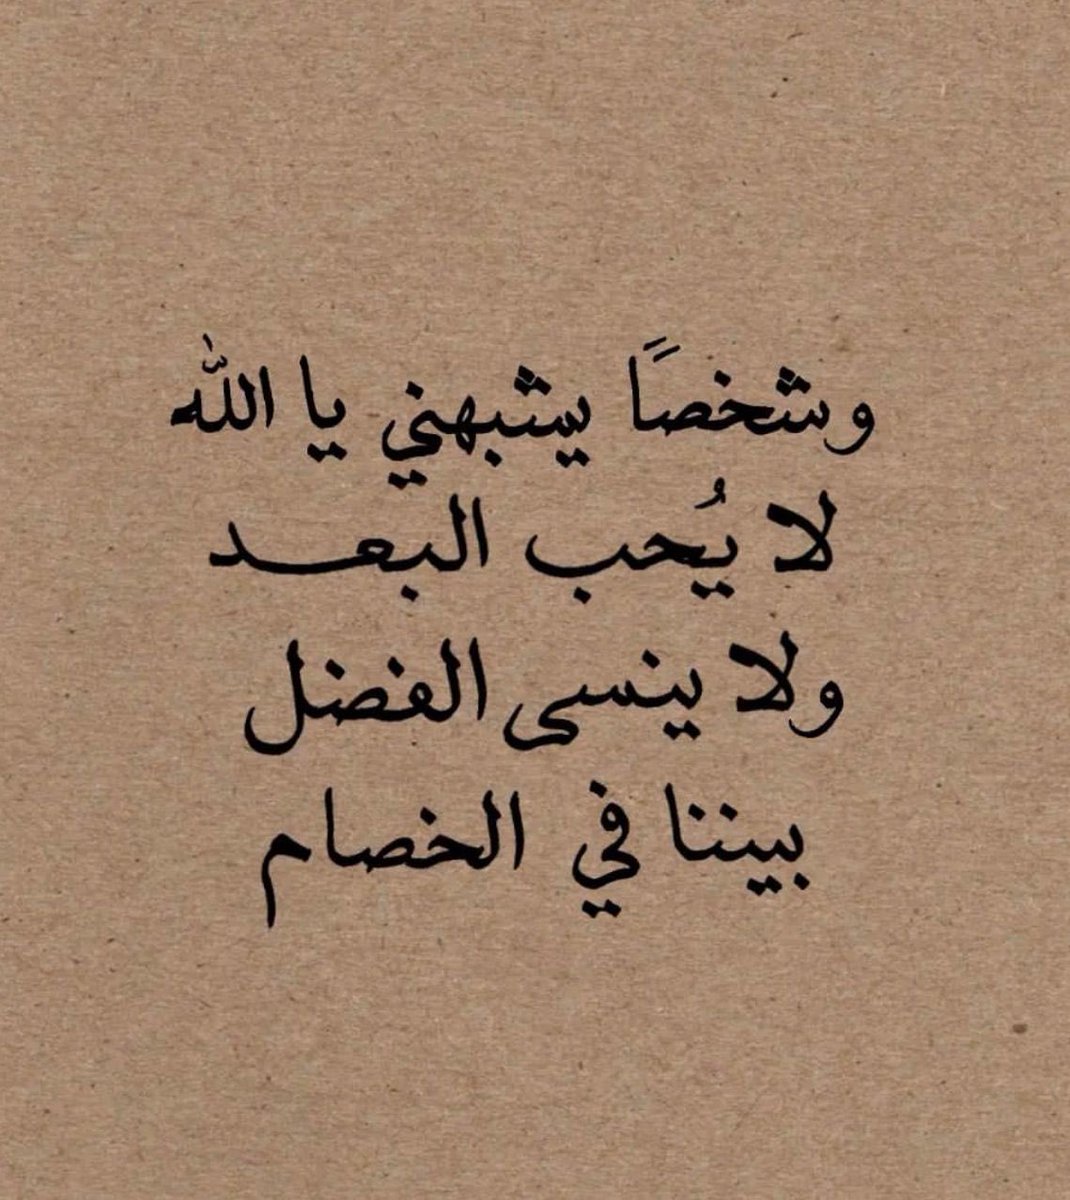 وشخصًا يشبهني يا الله
لا يُحب البعـــد
ولا ينسى الفضل
بيننا في الخصام